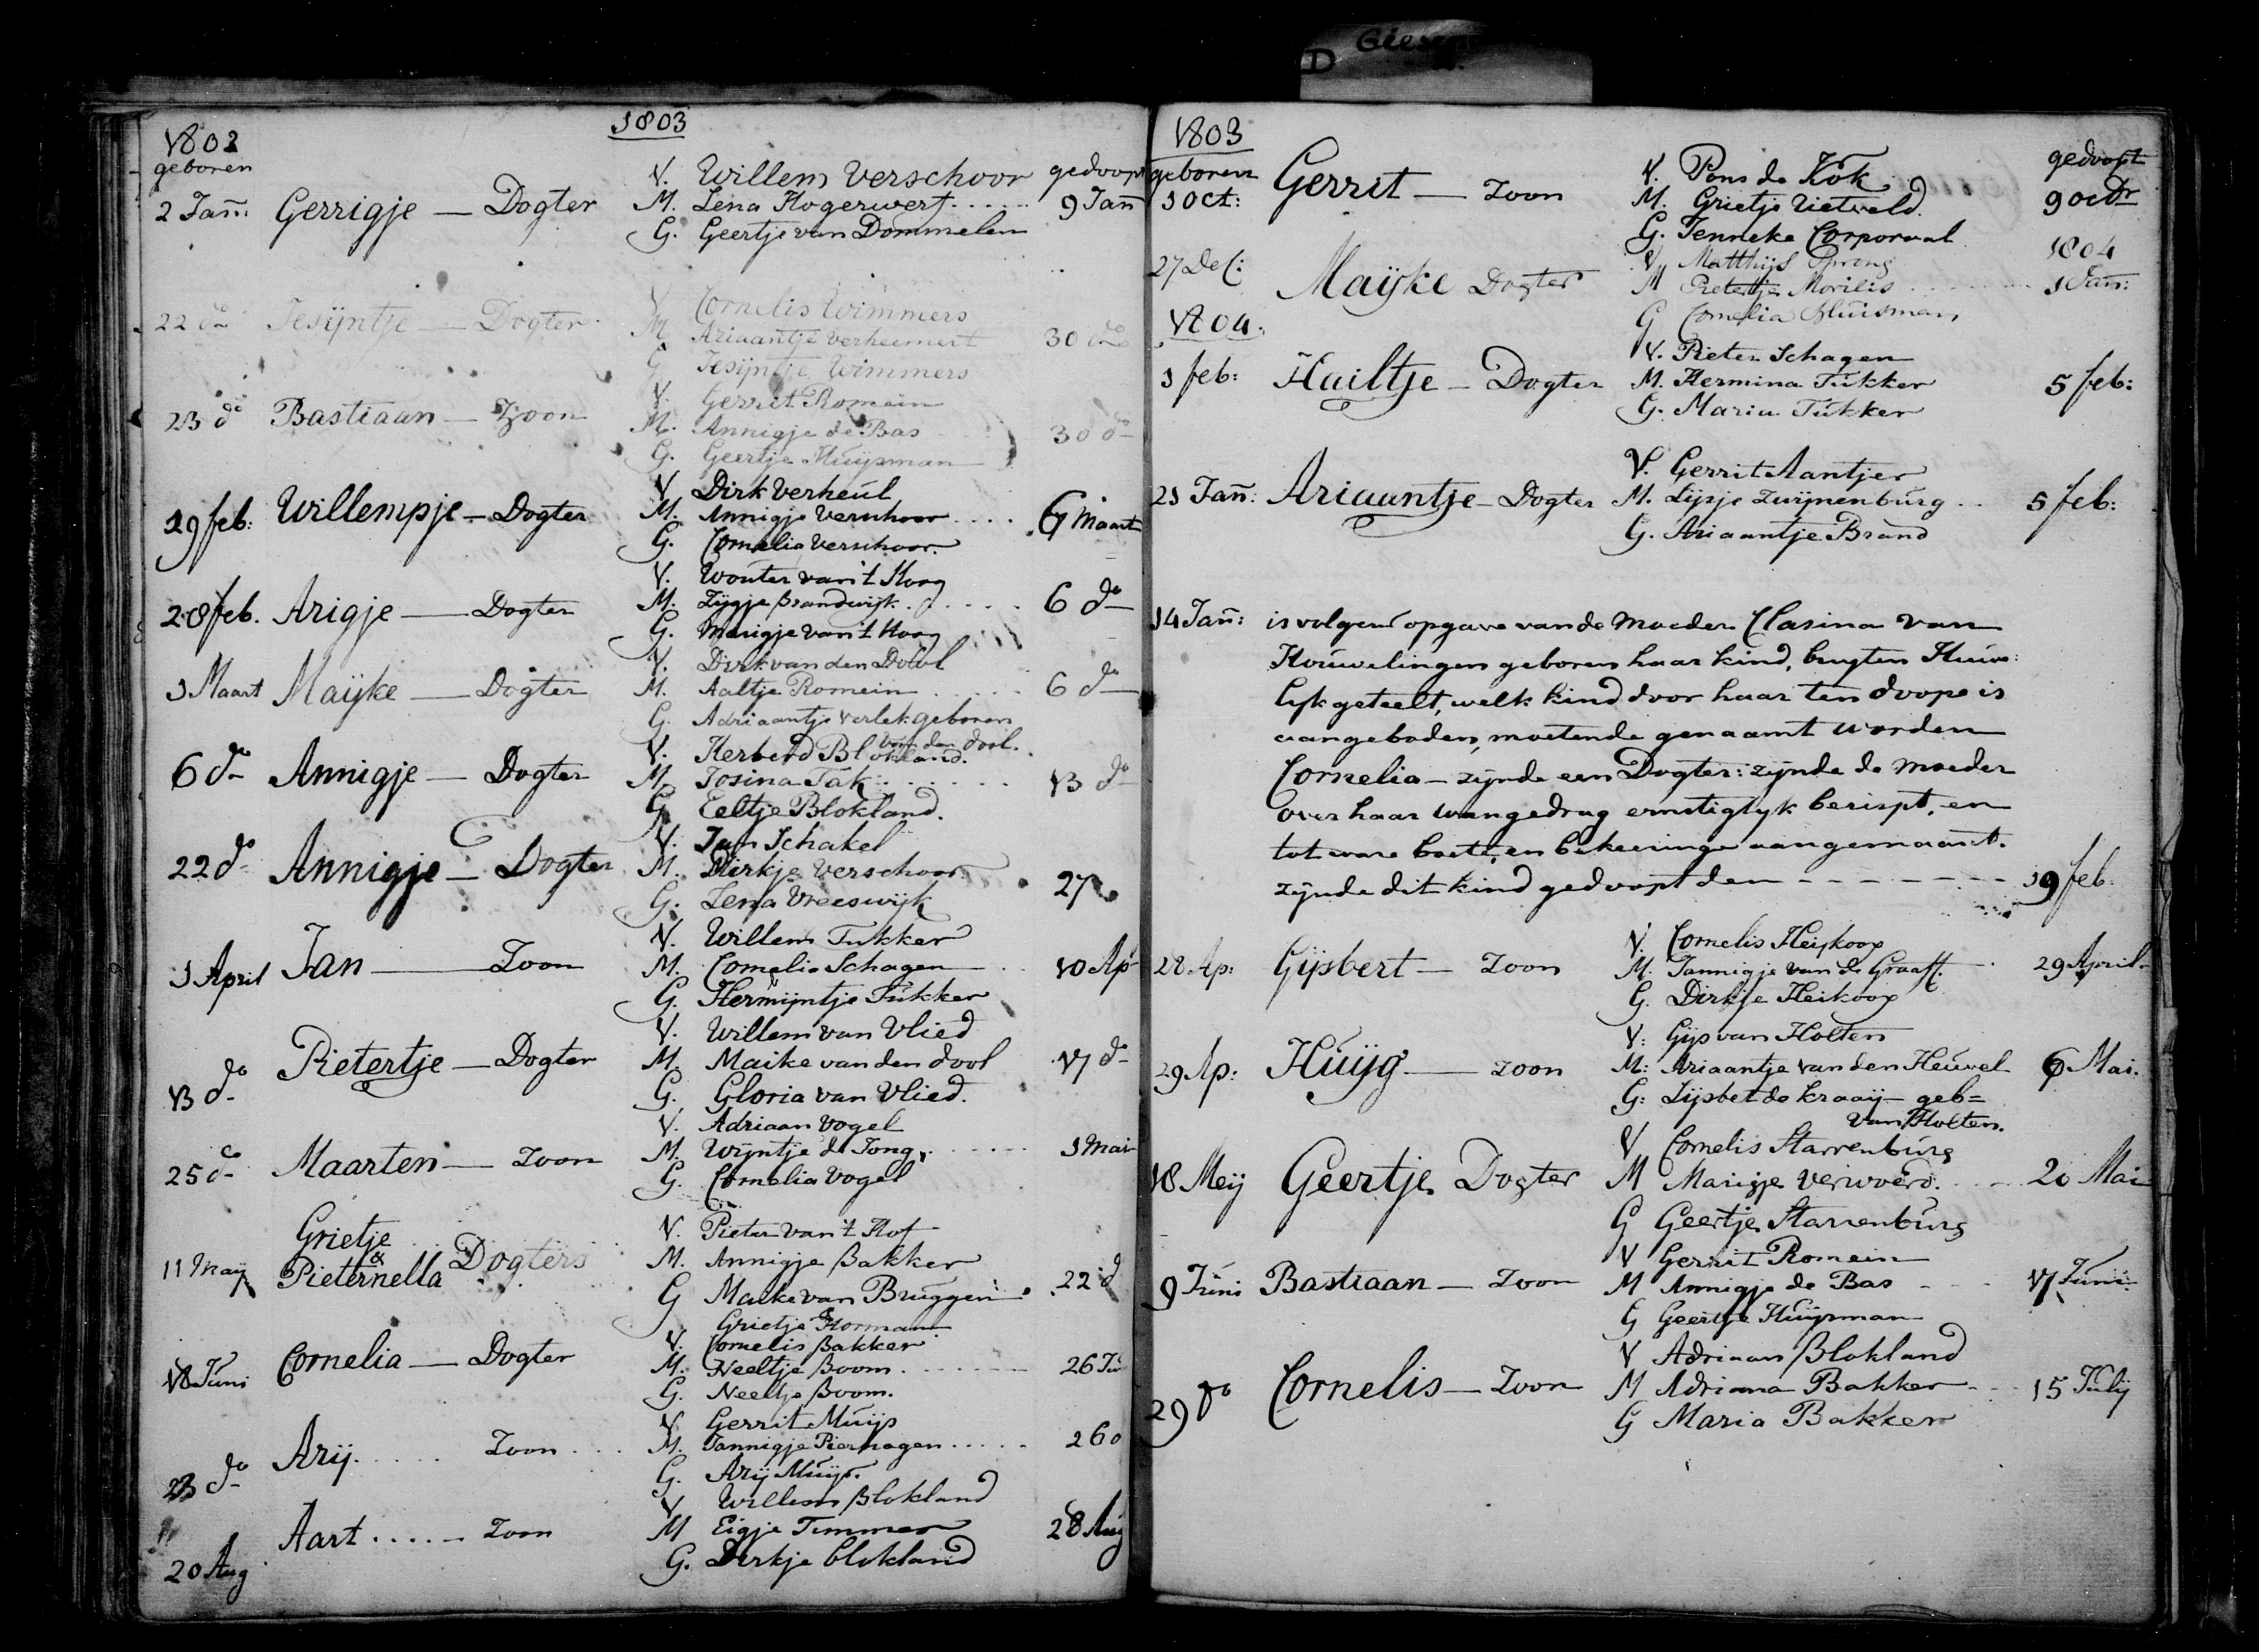 D Giese
1803
1803
geboren
V. Willem Verschoor gedoopt
2 Jañ: Gerrigje — Dogter M. Lena Hogerwerf..... 9 Jañ
G. Geertje van Dommelen
V Cornelis Wimmers
22 do Jesijntje — Dogter M Ariaantje Verheemert 30 do
G Jesijntje Wimmers
V. Gerrit Romein
23 do Bastiaan — Zoon M. Annigje de Bas 30 do
G. Geertje Huijsman
V Dirk Verheul
19 feb: Willempje — Dogter M. Annigje Verschoor .... 6 Maart
G. Cornelia Verschoor.
V. Wouter van 't Hoog
28 feb. Arigje — Dogter M. Zijgje Brandwijk ..... 6 do
G. Marigje van 't Hoog
V. Dirk van den Dool
1 Maart Maijke — Dogter M. Aaltje Romein ..... 6 do
G. Adriaantje Verlek geboren
van den dool.
V. Herberd Blokland.
6 do Annigje — Dogter M. Josina Tak ...... 13 do
G. Eeltje Blokland.
V. Jan Schakel
22 do Annigje — Dogter M. Dirkje Verschoor 27
G. Lena Vreeswijk
V. Willem Tukker
1 April Jan — Zoon M. Cornelia Schagen 10 Ap
G. Hermijntje Tukker
V. Willem van Vlied
13 do Pietertje — Dogter M. Maike van den dool 17 do
G. Gloria van Vlied.
V. Adriaan Vogel
25 do Maarten — Zoon M. Wijntje de Jong ...... 1 Mai
G. Cornelia Vogel
Grietje V. Pieter van 't Hof
11 Maij & Dogters M. Annigje Bakker
Pieternella G Maike van Bruggen 22 d
Grietje Horman
V. Cornelis Bakker
18 Juni Cornelia — Dogter M. Neeltje Boom ...... 26 Ju
G. Neeltje Boom.
V. Gerrit Muijs
23 do Arij..... Zoon ... M. Jannigje Piernagen ..... 26
G. Arij Muijs.
V Willem Blokland
20 Aug Aart ..... Zoon M Eigje Timmer 28 Aug
G. Dirkje blokland
1803
geboren V. Pons de Kok gedoopt
1 Oct: Gerrit — Zoon M. Grietje Rietveld. 9 octr
G. Jenneke Corporaal
1804
27 Dec: Maijke Dogter V Matthijs Sprong
M Pietertje Morilis 1 Jañ:
G Cornelia Huisman
1804.
V. Pieter Schagen
1 feb: Hailtje — Dogter M. Hermina Tukker 5 feb:
G. Maria Tukker
V. Gerrit Aantjer
21 Jañ: Ariaantje — Dogter M. Lijsje Zwijnenburg .. 5 feb:
G. Ariaantje Brand
14 Jañ: is volgens opgave van de Moeder Clasina van
Houwelingen geboren haar kind, buyten Huwe:
lyk geteelt, welk kind door haar ten doope is
aangeboden, moetende genaamt worden
Cornelia — zijnde een Dogter: zijnde de Moeder
over haar wangedrag ernstiglyk berispt, en
tot ware boete, en bekeeringe aangemaant.
zijnde dit kind gedoopt den - - - - - - - 19 feb.
V. Cornelis Heijkoop
28 Ap: Gijsbert — Zoon M. Jannigje van de Graaff. 29 April
G. Dirkje Heikoop
V: Gijs van Holten
29 Ap: Huijg — Zoon M: Ariaantje van den Heuvel 6 Mai.
G: Lijsbet de Kraaij geb=
van Holten.
V Cornelis Starrenburg
18 Meij Geertje Dogter M Marigje Verwoerd. 20 Mai
G Geertje Starrenburg
V Gerrit Romein
9 Juni Bastiaan — Zoon M Annigje de Bas 17 Juni
G Geertje Huijsman
V Adriaan Blokland
29 do Cornelis — Zoon M Adriana Bakker 15 Julij
G Maria Bakker